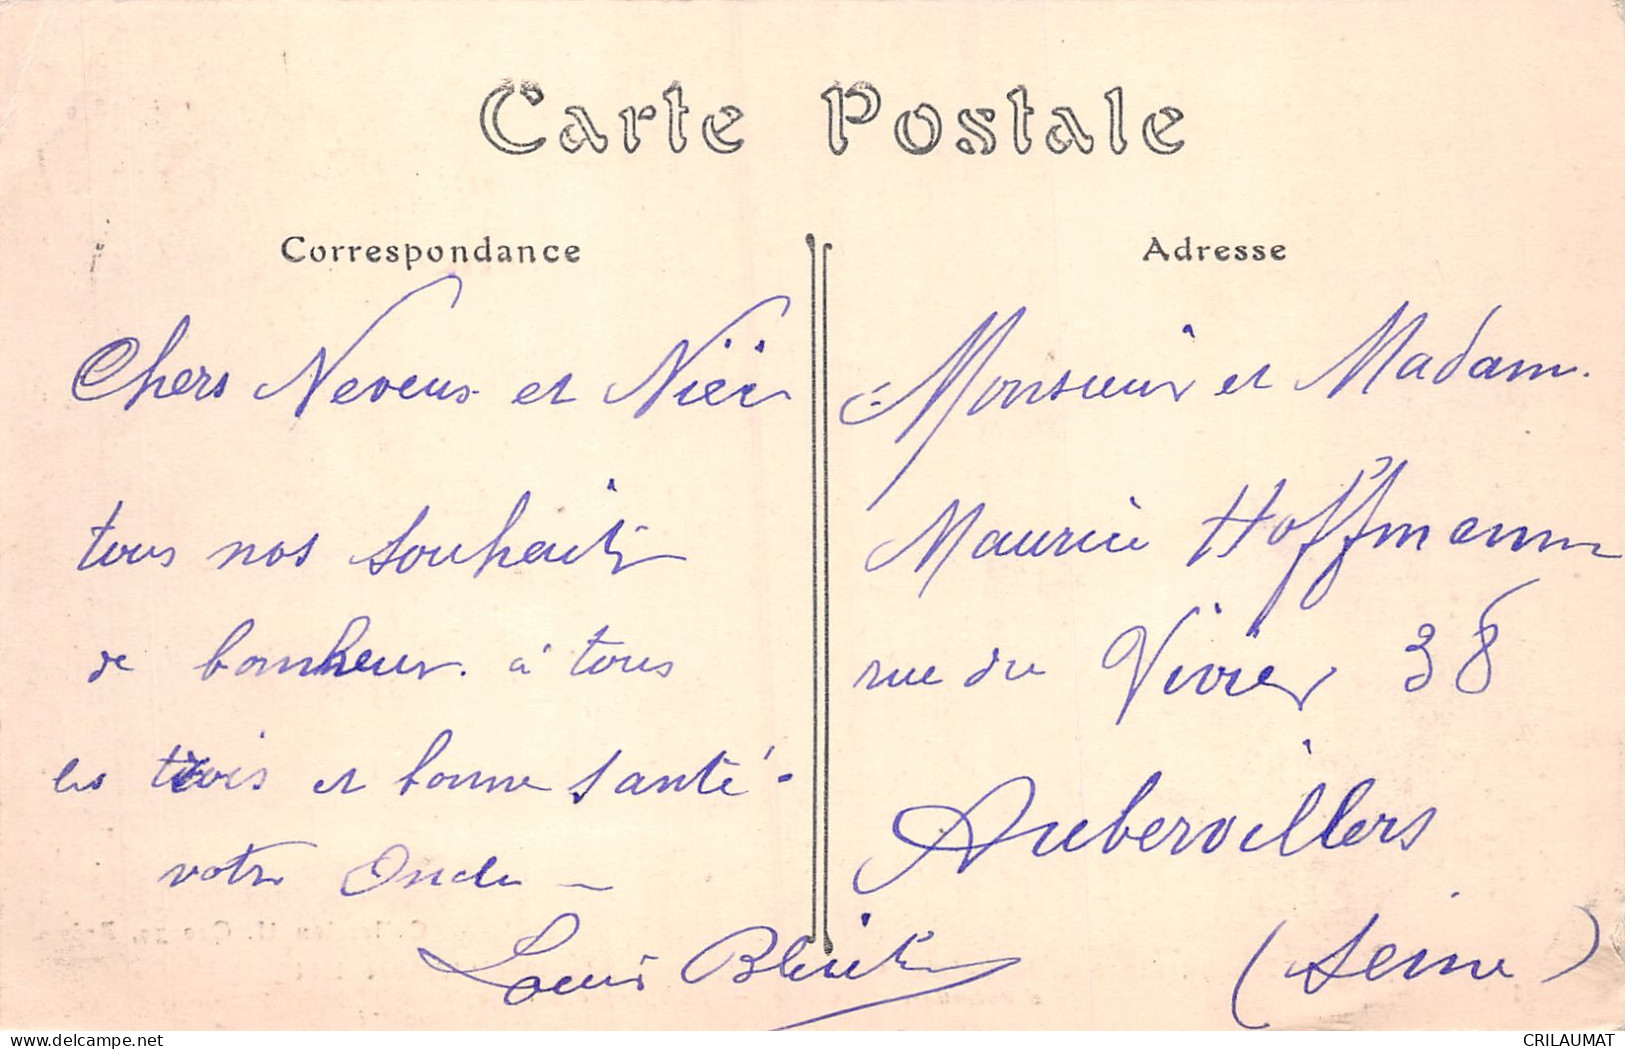 Carte Postale
Correspondance
Chers Neveux et Nièce
tous nos souhaits
de bonheur à tous
les trois et bonne santé -
votre Oncle -
Louis
Adresse
Monsieur et Madame
Maurice Hoffmann
rue du Vivier 38
Aubervilliers
(Seine)
www.delcampe.net
CRILAUMAT